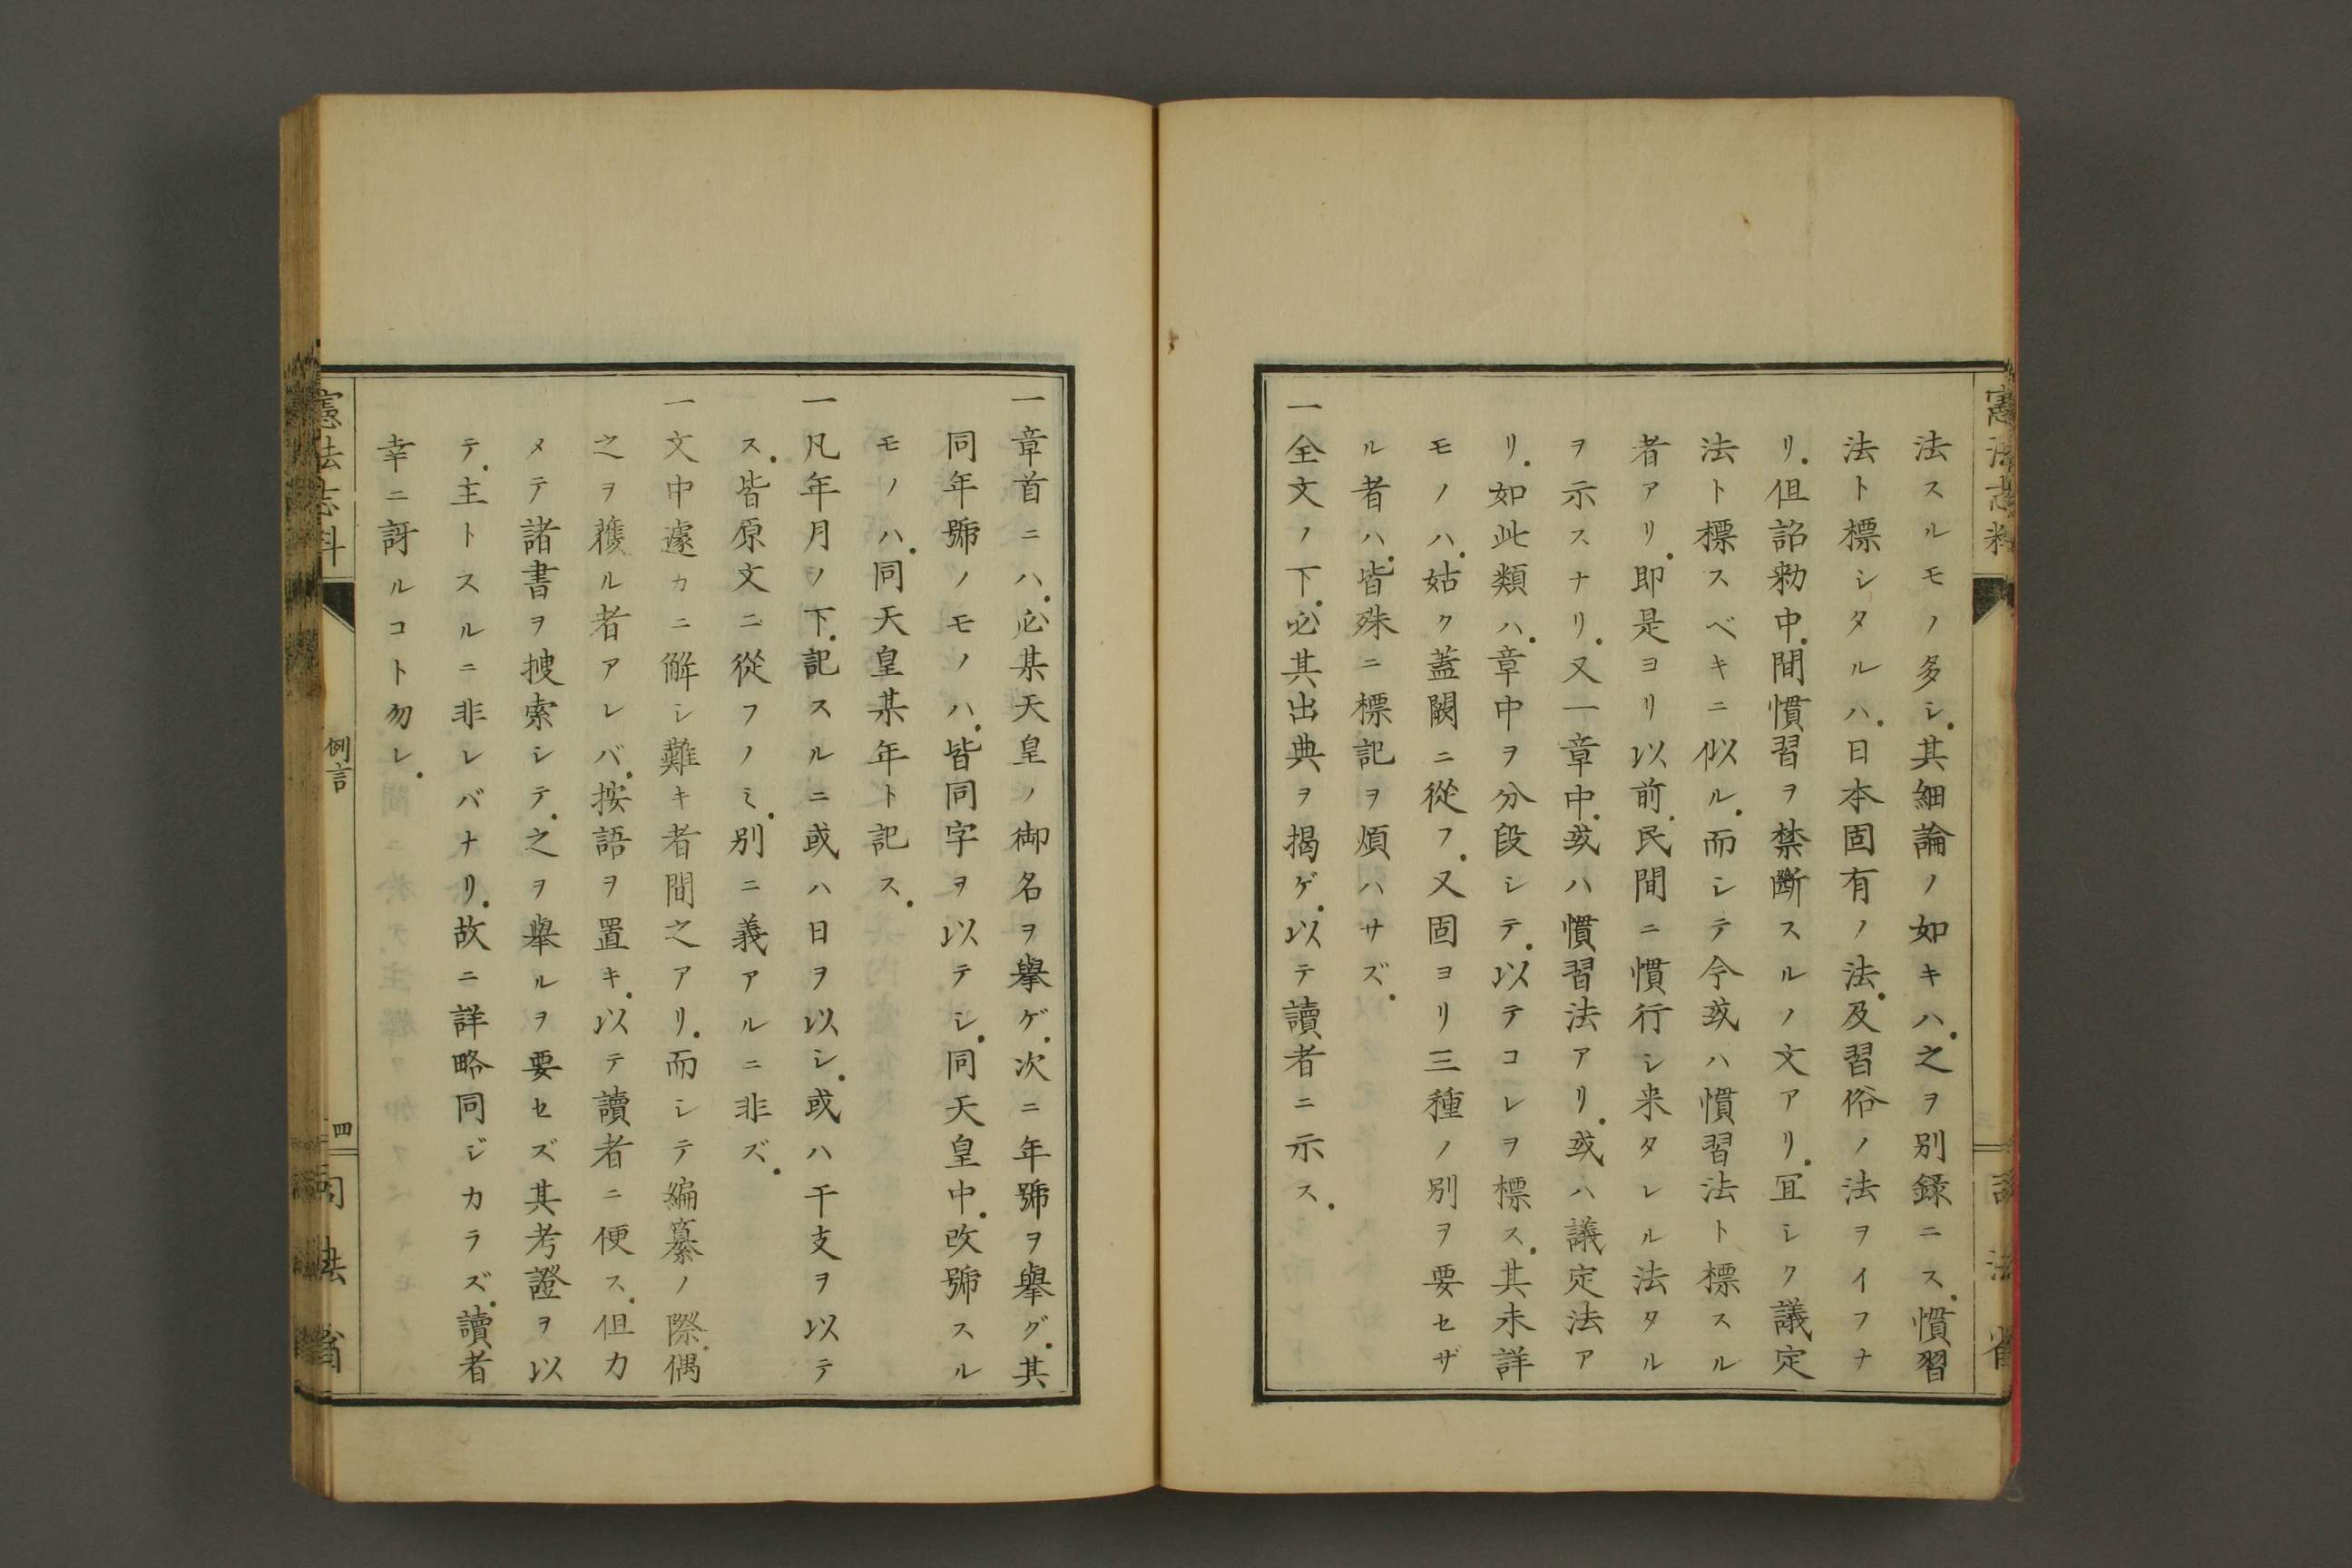 憲法志料
法スルモノ多シ。其細論ノ如キハ。之ヲ別録ニス。慣習
法ト標シタルハ。日本固有ノ法。及習俗ノ法ヲイフナ
リ。但詔勅中。間慣習ヲ禁斷スルノ文アリ。冝シク議定
法ト標スベキニ似ル。而シテ今或ハ慣習法ト標スル
者アリ。即是ヨリ以前。民間ニ慣行シ来タレル法タル
ヲ示スナリ。又一章中。或ハ慣習法アリ。或ハ議定法ア
リ。如此類ハ。章中ヲ分段シテ。以テコレヲ標ス。其未詳
モノハ。姑ク蓋闕ニ從フ。又固ヨリ三種ノ別ヲ要セザ
ル者ハ。皆殊ニ標記ヲ煩ハサズ。
一全文ノ下。必其出典ヲ揭ゲ。以テ讀者ニ示ス。
一章首ニハ。必某天皇ノ御名ヲ擧ゲ。次ニ年號ヲ擧グ。其
同年號ノモノハ。皆同字ヲ以テシ。同天皇中。改號スル
モノハ。同天皇某年ト記ス。
一凡年月ノ下。記スルニ或ハ日ヲ以シ。或ハ干支ヲ以テ
ス。皆原文ニ從フノミ。別ニ義アルニ非ズ。
一文中遽カニ解シ難キ者間之アリ。而シテ編纂ノ際。偶
之ヲ獲ル者アレバ。按語ヲ置キ。以テ讀者ニ便ス。但カ
メテ諸書ヲ搜索シテ。之ヲ擧ルヲ要セズ其考證ヲ以
テ。主トスルニ非レバナリ。故ニ詳略同ジカラズ。讀者
幸ニ訝ルコト勿レ。
憲法志料
例言
四
司法省